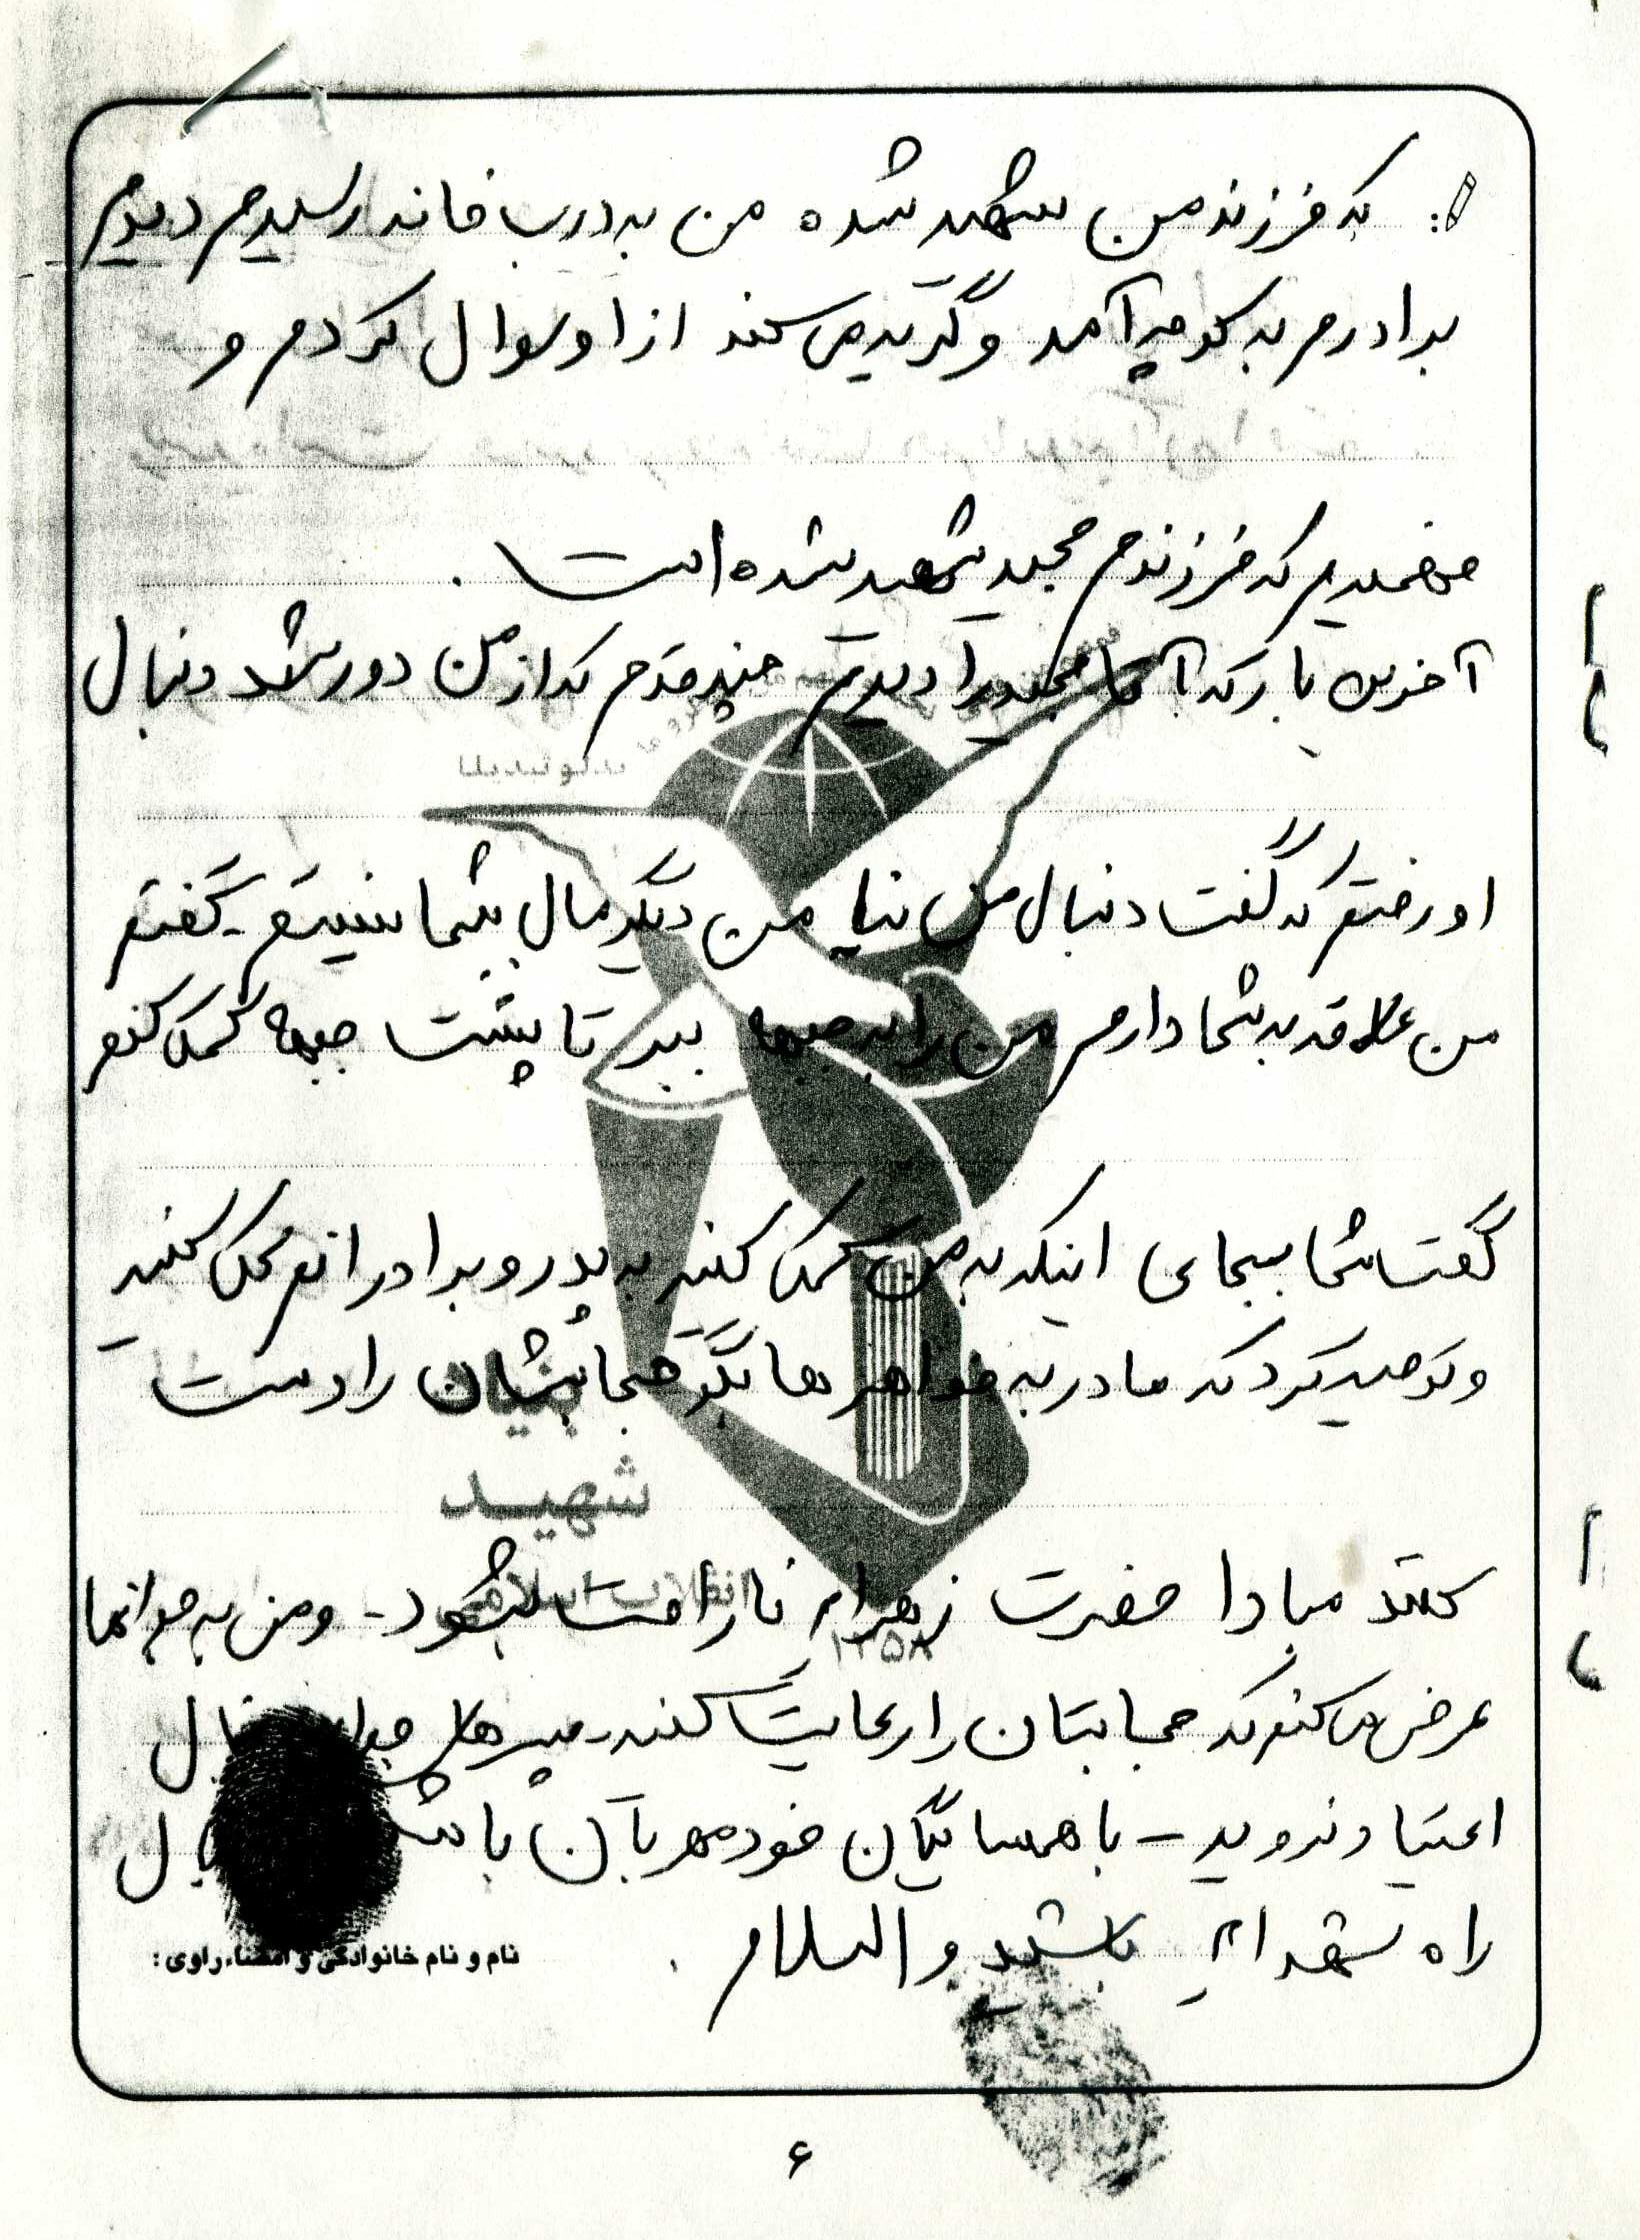 که فرزند من شهید شده من به درب خانه رسیدم دیدم
برادرم به کوچه آمد و گریه می کند از او سوال کردم و
فهمیدم که فرزندم مجید شهید شده است .
آخرین بار که آقا مجید را دیدم چند قدم که از من دور شد دنبال
او رفتم که گفت دنبال من نیا من دیگر مال شما نیستم - گفتم
من علاقه به شما دارم من را به جبهه ببر تا پشت جبهه کمک کنم
گفت شما بجای اینکه به من کمک کنید به پدر و برادرانم کمک کنید
و توصیه کرد که مادر به خواهرها بگو حجابشان را درست
کنند مبادا حضرت زهرا ناراحت شود - و من به جوانها
عرض می کنم که حجابتان را رعایت کنند - پسرهای جوان دنبال
اعتیاد نروید - با همسایگان خود مهربان
راه شهدا باشید والسلام .
بنیان
شهید
انقلاب اسلامی
۱۳۵۸
نام و نام خانوادگی و امضاء راوی :
۶